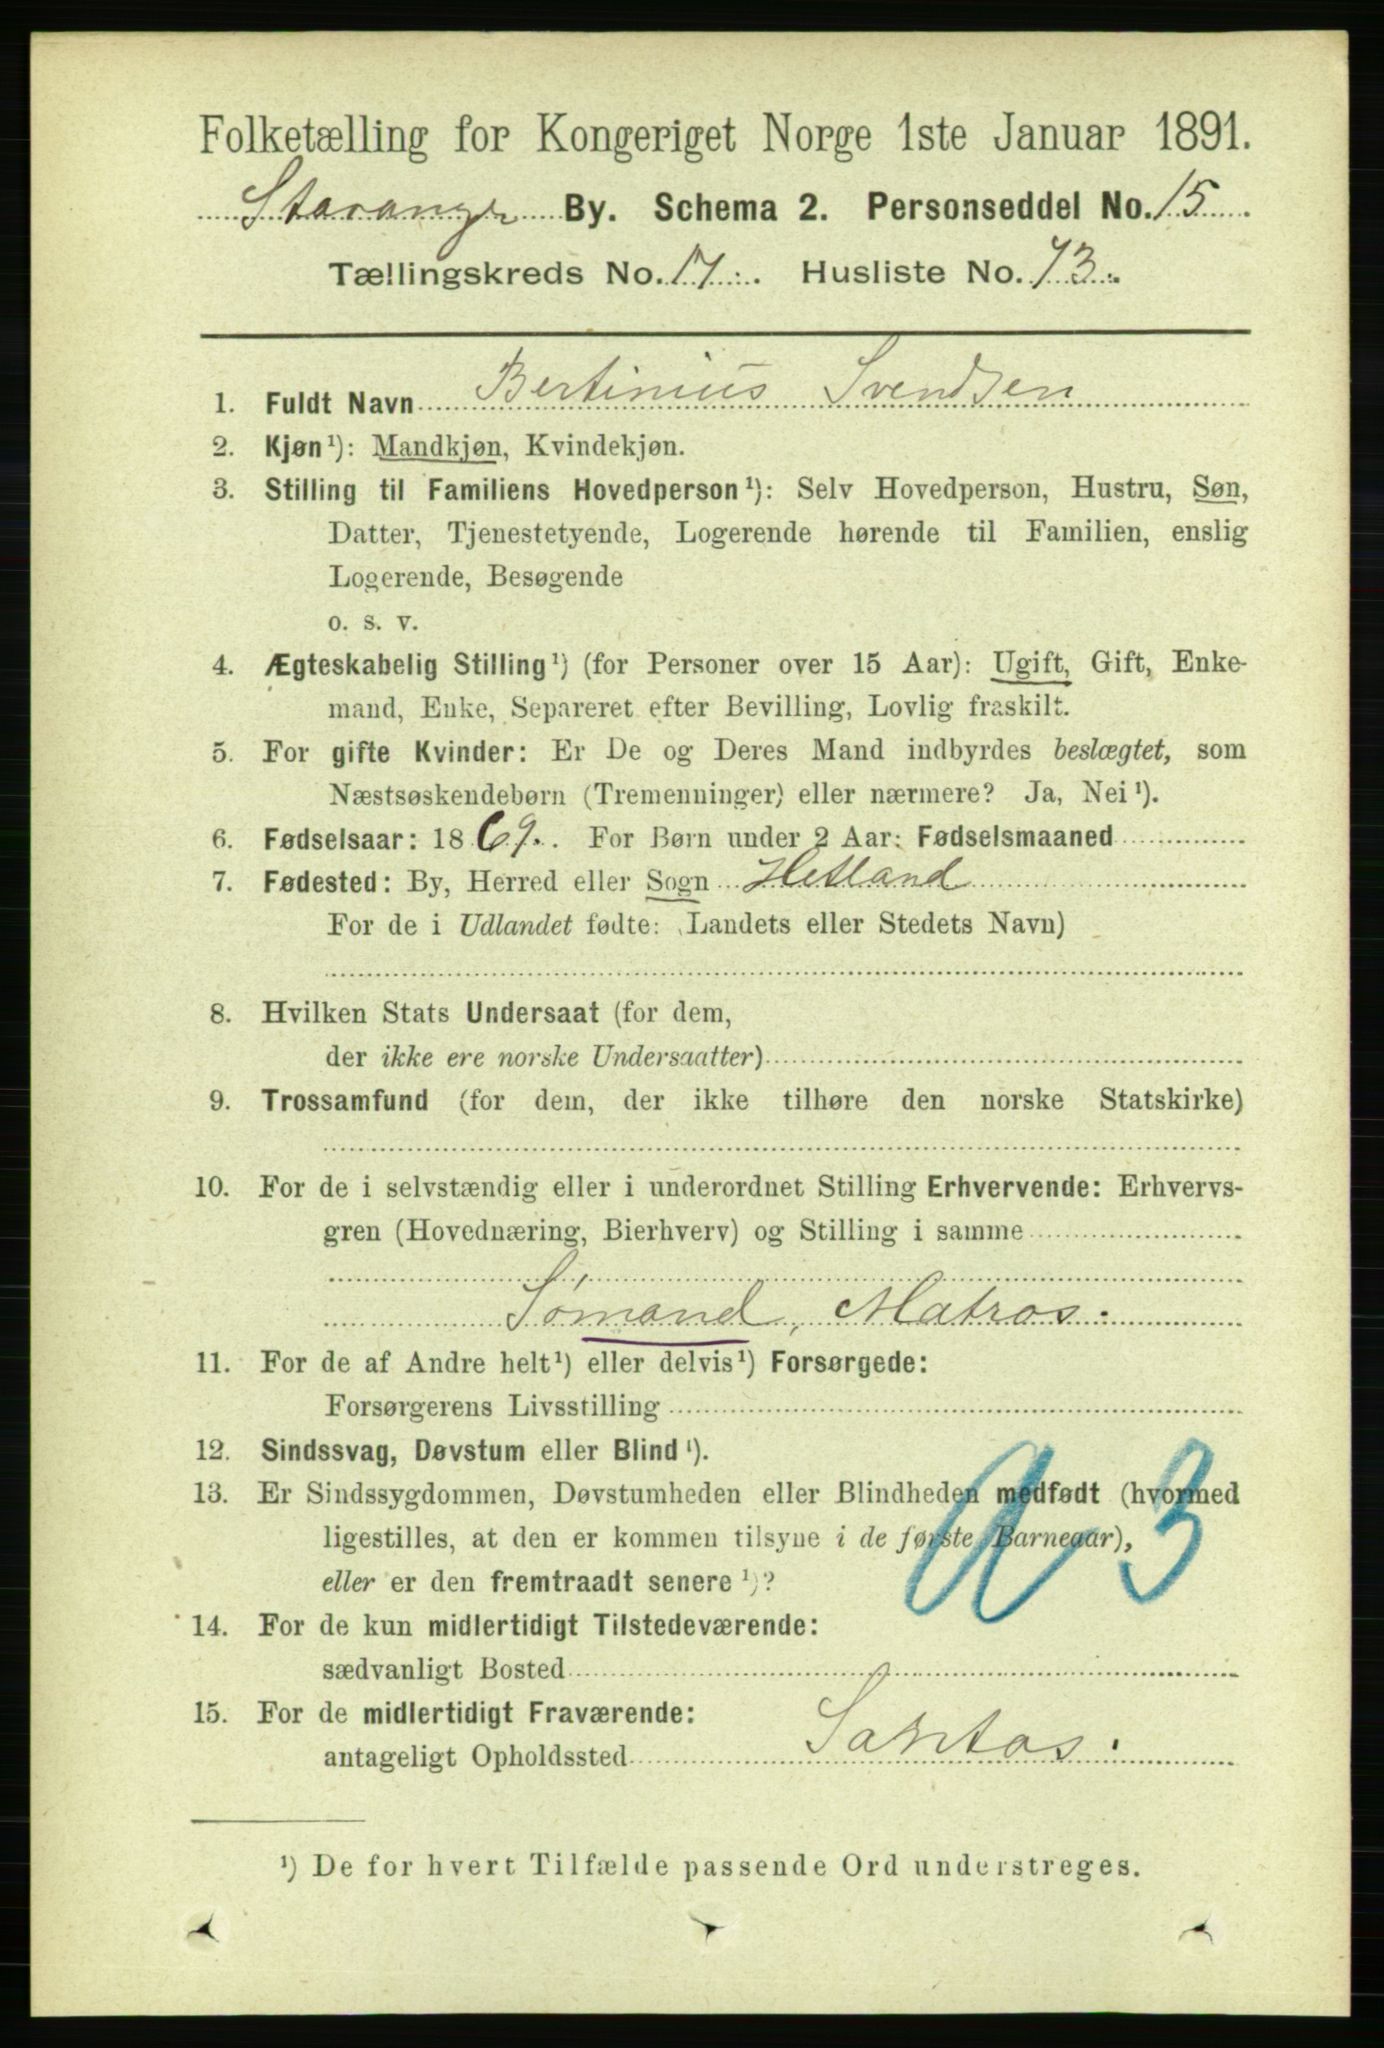 Folketælling for Kongeriget Norge 1ste Januar 1891.
Stavanger By. Schema 2. Personseddel No. 15
Tællingskreds No. 17. Husliste No. 73.
1. Fuldt Navn Bertinius Svendsen
2. Kjøn¹): Mandkjøn, Kvindekjøn.
3. Stilling til Familiens Hovedperson¹): Selv Hovedperson, Hustru, Søn,
Datter, Tjenestetyende, Logerende hørende til Familien, enslig
Logerende, Besøgende
o. s. v.
4. Ægteskabelig Stilling¹) (for Personer over 15 Aar): Ugift, Gift, Enke-
mand, Enke, Separeret efter Bevilling, Lovlig fraskilt.
5. For gifte Kvinder: Er De og Deres Mand indbyrdes beslægtet, som
Næstsøskendebørn (Tremenninger) eller nærmere? Ja, Nei¹).
6. Fødselsaar: 1869. For Børn under 2 Aar: Fødselsmaaned
7. Fødested: By, Herred eller Sogn Hetland
For de i Udlandet fødte: Landets eller Stedets Navn)
8. Hvilken Stats Undersaat (for dem,
der ikke ere norske Undersaatter)
9. Trossamfund (for dem, der ikke tilhøre den norske Statskirke)
10. For de i selvstændig eller i underordnet Stilling Erhvervende: Erhvervs-
gren (Hovednæring, Bierhverv) og Stilling i samme
Sømand, Matros.
11. For de af Andre helt¹) eller delvis¹) Forsørgede:
Forsørgerens Livsstilling
12. Sindssvag, Døvstum eller Blind¹).
13. Er Sindssygdommen, Døvstumheden eller Blindheden medfødt (hvormed
ligestilles, at den er kommen tilsyne i de første Barneaar),
eller er den fremtraadt senere¹)?
14. For de kun midlertidigt Tilstedeværende:
sædvanligt Bosted
15. For de midlertidigt Fraværende:
antageligt Opholdssted Santos.
¹) De for hvert Tilfælde passende Ord understreges.